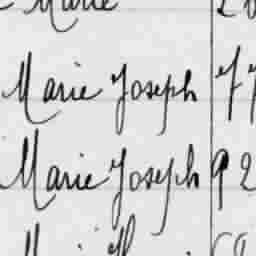 Marie
Marie Joseph 77
Marie Joseph 92